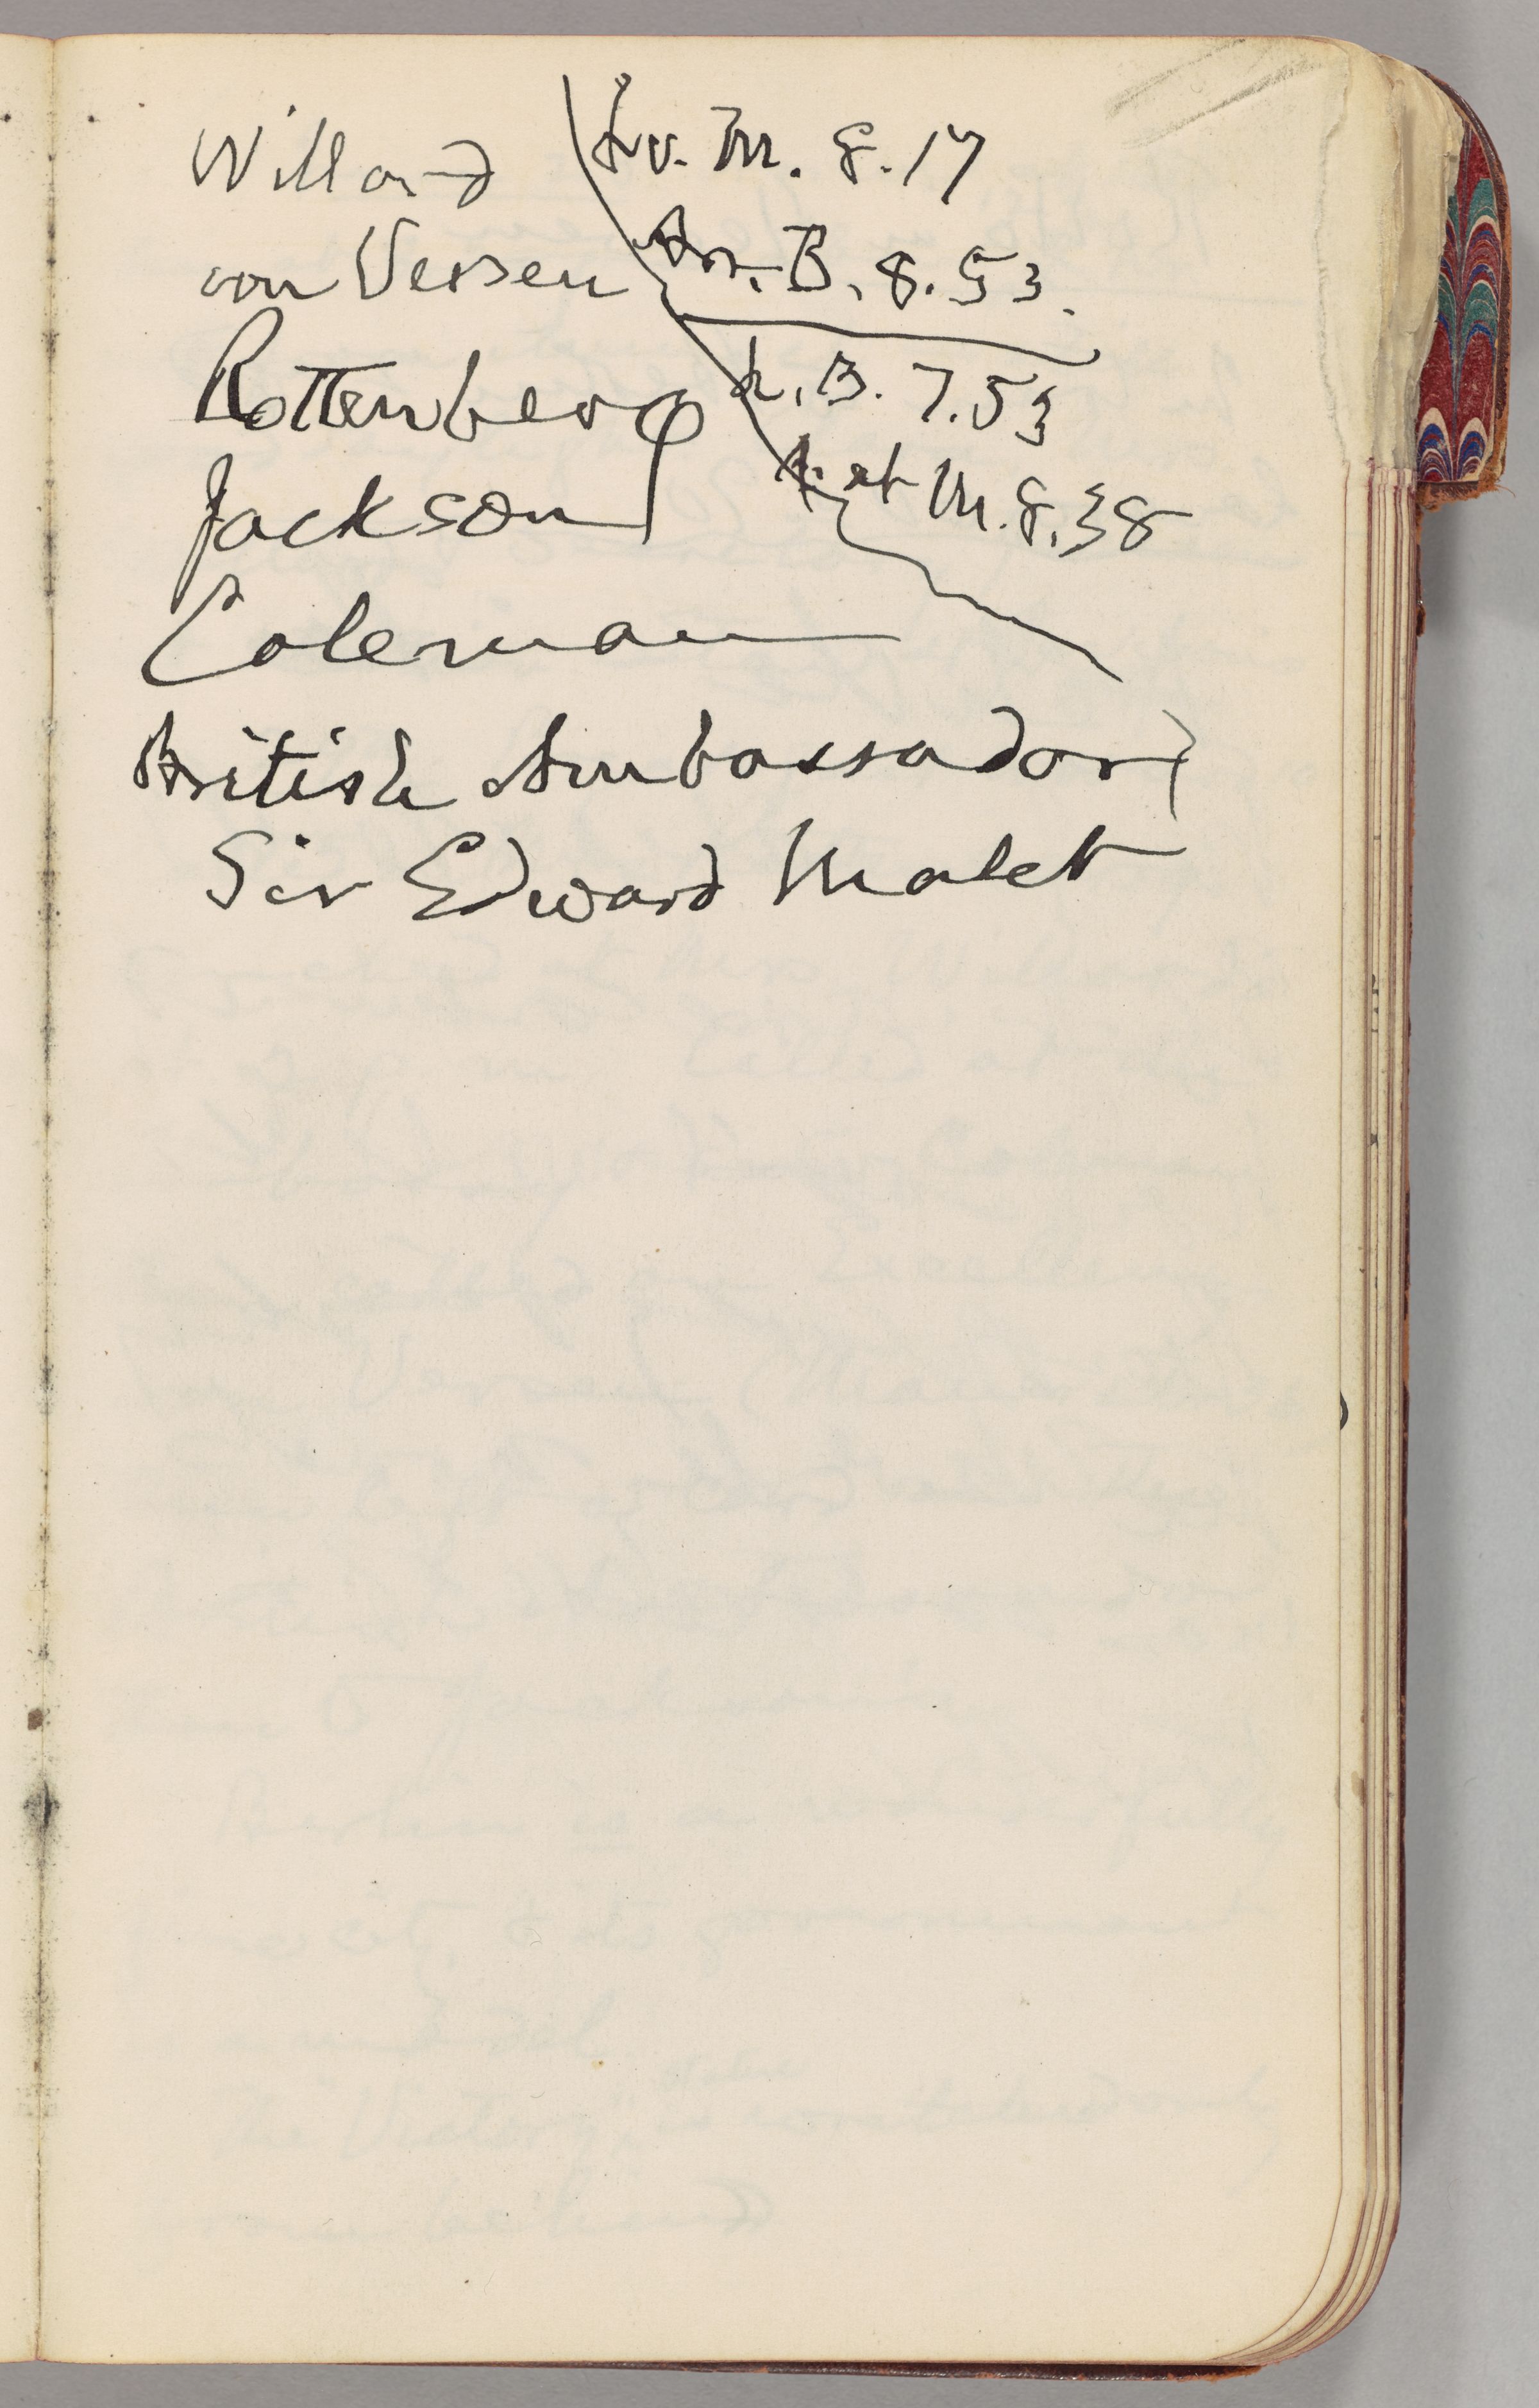 Willard
von Versen
Rottenberg
Jackson
Coleman
British Ambassador
Sir Edward Malet
Lv. M. 8.17
Arr. B. 8.53.
L. B. 7.53
at M. 8.38